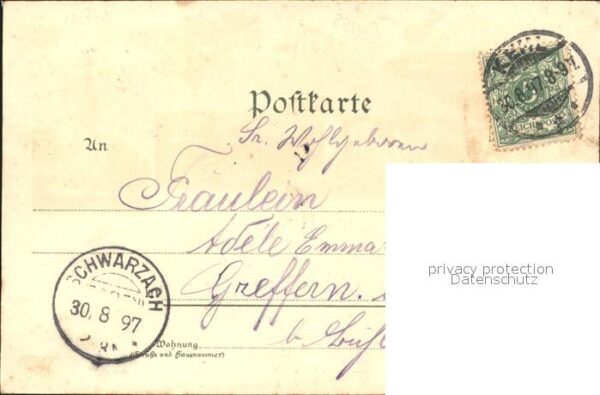 Postkarte
Sr. Wohlgeboren
An
Fräulein
Adéle Emma
Greffern.
b. Bühl
Wohnung
(Straße und Hausnummer)
SCHWARZACH
30. 8 97
KEHL
30.8.97.8-9N.
REICHSPOST
privacy protection
Datenschutz